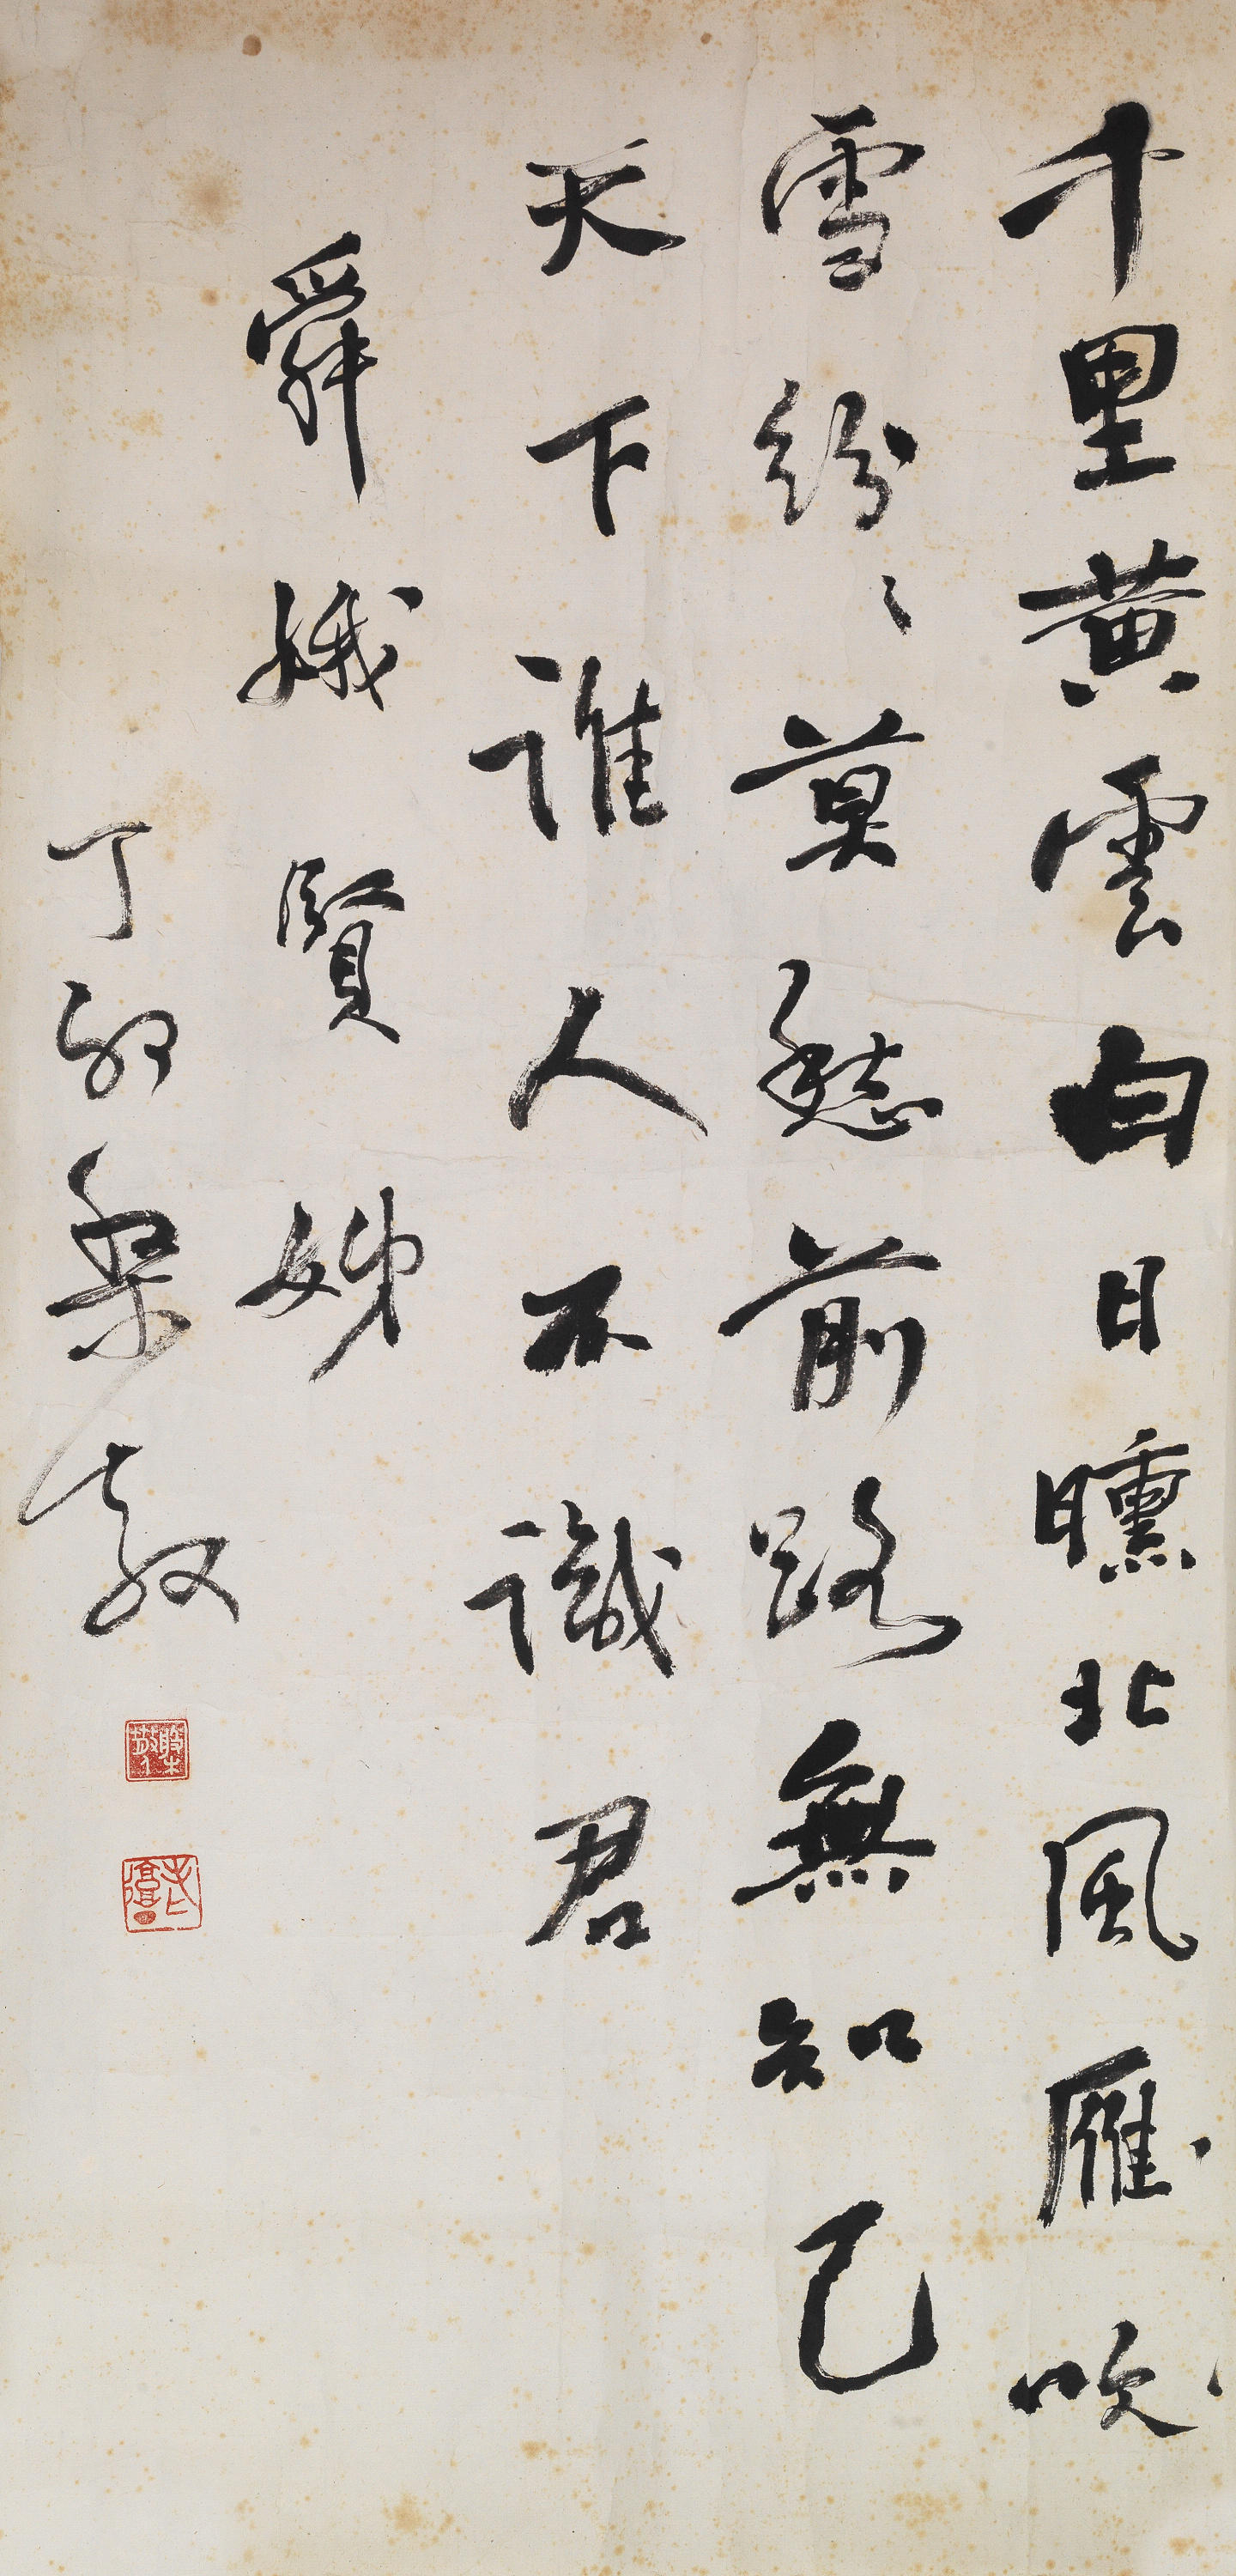 千里黃雲白日曛北風雁吹
雪紛〻莫愁前路無知己
天下誰人不識君
舜娥賢姊
丁卯槃敬